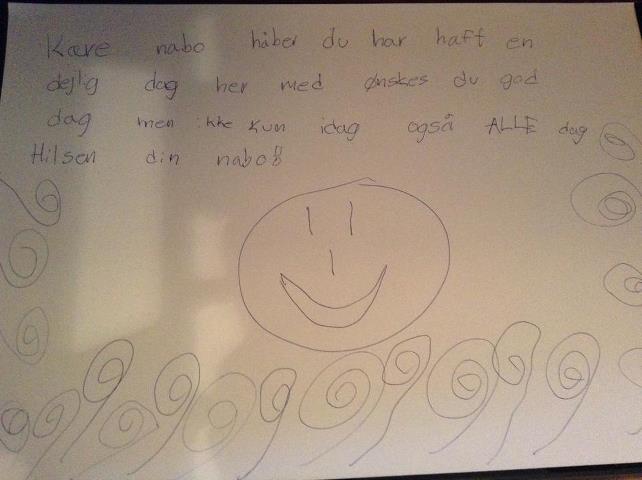 Kære nabo håber du har haft en
dejlig dag her med ønskes du god
dag men ikke kun idag også ALLE dag
Hilsen din nabo!!